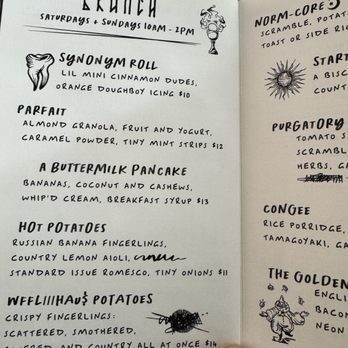 BRUNCH
SATURDAYS + SUNDAYS 10AM - 2PM
SYNONYM ROLL
LIL MINI CINNAMON DUDES,
ORANGE DOUGHBOY ICING $10
PARFAIT
ALMOND GRANOLA, FRUIT AND YOGURT,
CARAMEL POWDER, TINY MINT STRIPS $12
A BUTTERMILK PANCAKE
BANANAS, COCONUT AND CASHEWS,
WHIP'D CREAM, BREAKFAST SYRUP $13
HOT POTATOES
RUSSIAN BANANA FINGERLINGS,
COUNTRY LEMON AIOLI,
STANDARD ISSUE ROMESCO, TINY ONIONS $11
WFFL///HAU$ POTATOES
CRISPY FINGERLINGS:
SCATTERED, SMOTHERED,
AND COUNTRY ALL AT ONCE $14
NORM-CORE
SCRAMBLE, POTA
TOAST OR SIDE RI
START
A BISC
COUNT
PURGATORY
TOMATO S
SCRAMBL
HERBS, GA
CONGEE
RICE PORRIDGE,
TAMAGOYAKI, GA
THE GOLDEN
ENGLI
BACON
NEON